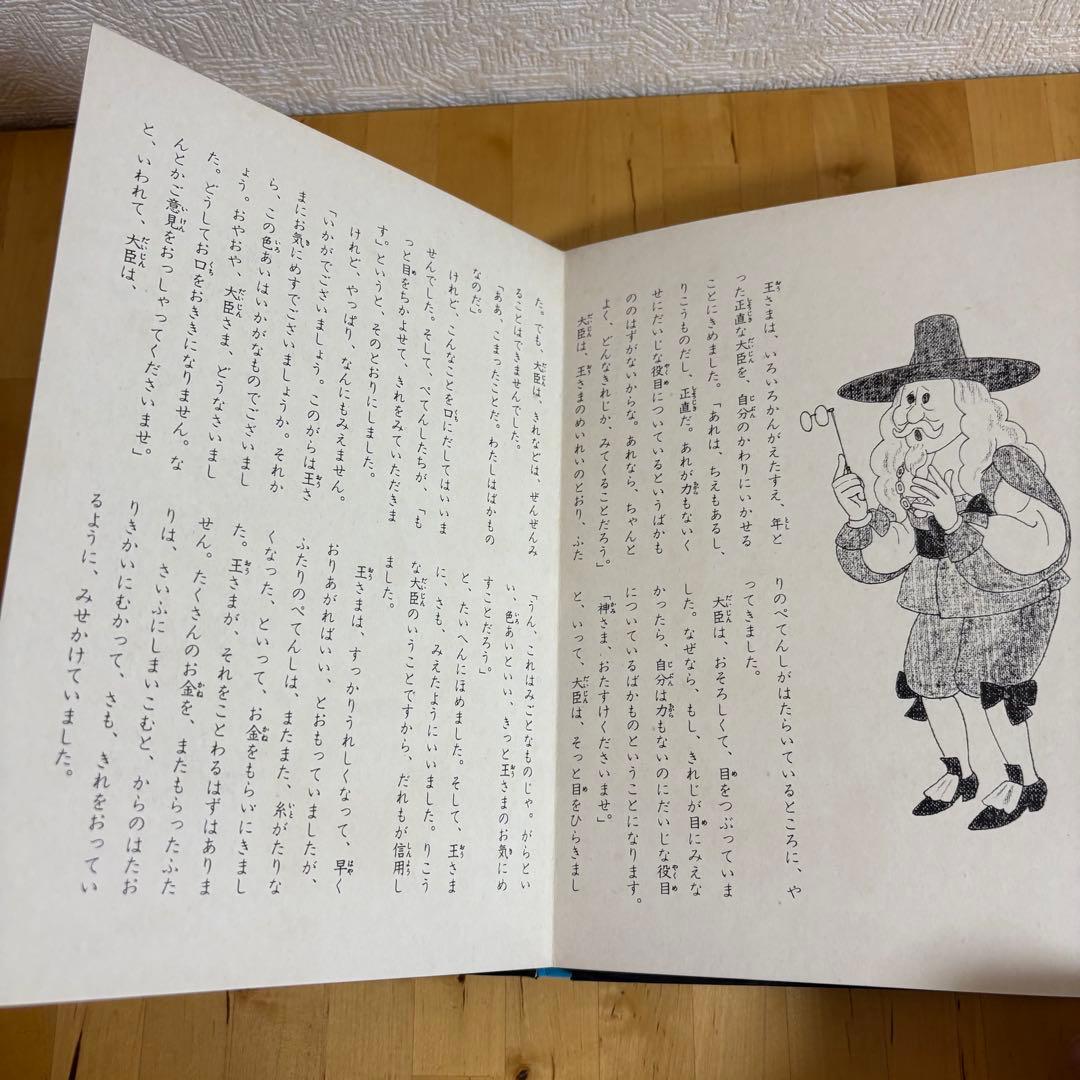 王さまは、いろいろかんがえたすえ、年と
った正直な大臣を、自分のかわりにいかせる
ことにきめました。「あれは、ちえもあるし、
りこうものだし、正直だ。あれが力もないく
せにだいじな役目についているというばかも
ののはずがないからな。あれなら、ちゃんと
よく、どんなきれじか、みてくることだろう。」
大臣は、王さまのめいれいのとおり、ふた
りのぺてんしがはたらいているところに、や
ってきました。
大臣は、おそろしくて、目をつぶっていま
した。なぜなら、もし、きれじが目にみえな
かったら、自分は力もないのにだいじな役目
についているばかものということになります。
「神さま、おたすけくださいませ。」
と、いって、大臣は、そっと目をひらきまし
た。でも、大臣は、きれなどは、ぜんぜんみ
ることはできませんでした。
「ああ、こまったことだ。わたしはばかもの
なのだ。」
けれど、こんなことを口にだしてはいいま
せんでした。そして、ぺてんしたちが、「も
っと目をちかよせて、きれをみていただきま
す」というと、そのとおりにしました。
けれど、やっぱり、なんにもみえません。
「いかがでございましょう。このがらは王さ
まにお気にめすでございましょうか。それか
ら、この色あいはいかがなものでございまし
ょう。おやおや、大臣さま、どうなさいまし
た。どうしてお口をおききになりません。な
んとかご意見をおっしゃってくださいませ。」
と、いわれて、大臣は、
「うん、これはみごとなものじゃ。がらとい
い、色あいといい、きっと王さまのお気にめ
すことだろう。」
と、たいへんにほめました。そして、王さま
に、さも、みえたようにいいました。りこう
な大臣のいうことですから、だれもが信用し
ました。
王さまは、すっかりうれしくなって、早く
おりあがればいい、とおもっていましたが、
ふたりのぺてんしは、またまた、糸がたりな
くなった、といって、お金をもらいにきまし
た。王さまが、それをことわるはずはありま
せん。たくさんのお金を、またもらったふた
りは、さいふにしまいこむと、からのはたお
りきかいにむかって、さも、きれをおってい
るように、みせかけていました。